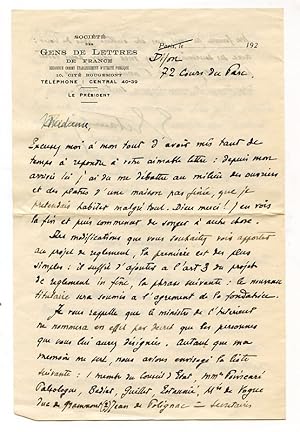 SOCIÉTÉ
DES
GENS DE LETTRES
DE FRANCE
RECONNUE COMME ÉTABLISSEMENT D'UTILITÉ PUBLIQUE
10, CITÉ ROUGEMONT
TÉLÉPHONE : CENTRAL 40-39
LE PRÉSIDENT
Paris, le 192
Dijon
72 Cours du Parc
Madame,
Excusez moi à mon tout d'avoir mis tant de
temps à répondre à votre aimable lettre : depuis mon
arrivée ici j'ai dû me débattre au milieu des ouvriers
et des plâtres d'une maison pas finie, que je
prétendais habiter malgré tout. Dieu merci ! j'en vois
la fin et puis commencer de songer à autre chose.
Des modifications que vous souhaitez voir apportées
au projet de règlement, la première est des plus
simples : il suffit d'ajouter à l'art 3 du projet
de règlement in fine, la phrase suivante : le nouveau
titulaire sera soumis à l'agrément de la fondatrice.
Je vous rappelle que le ministre de l'Intérieur
ne nommera en effet par décret que les personnes
que vous lui aurez désignées. Autant que ma
mémoire me sert, nous avions envisagé la liste
suivante : 1 membre du Conseil d'Etat, Mme Poincaré
Paléologue, Bédier, Guillet, Estaunié, Mis de Vogüe
duc de Grammont (?) Jean de Polignac = secrétaire